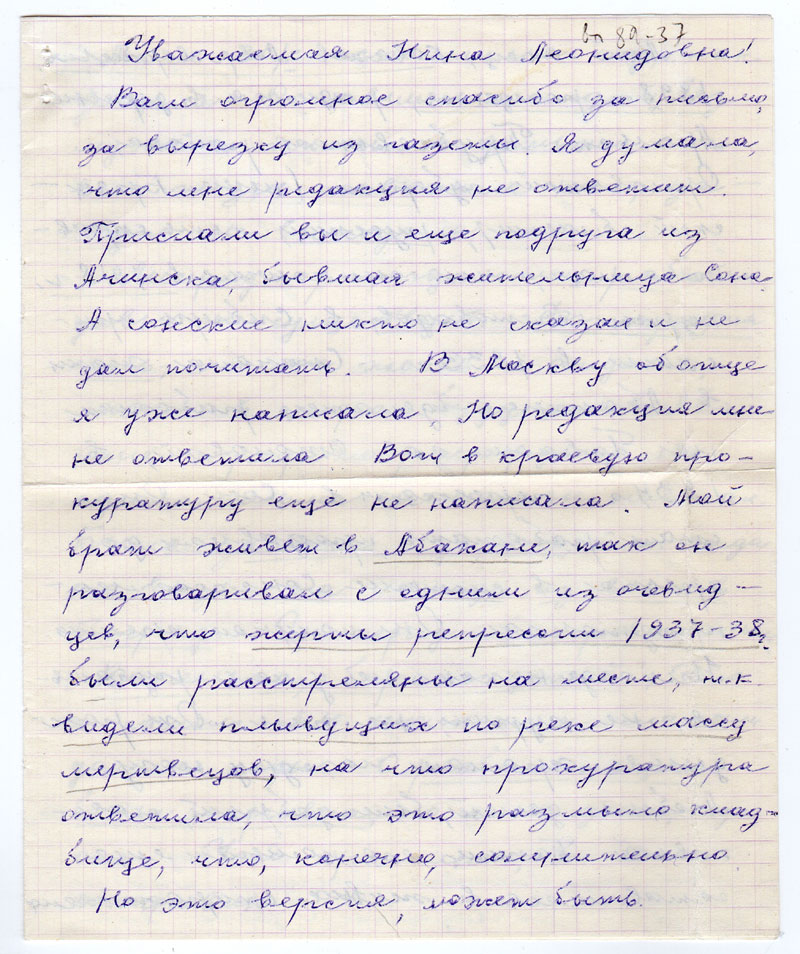 вл 89-37
Уважаемая Нина Леонидовна!
Вам огромное спасибо за письмо,
за вырезку из газеты. Я думала,
что мне редакция не ответит.
Прислали вы и еще подруга из
Ачинска, бывшая жительница Сона.
А сонские никто не сказал и не
дал почитать. В Москву об отце
я уже написала. Но редакция мне
не ответила. Вот в краевую про-
куратуру еще не написала. Мой
брат живет в Абакане, так он
разговаривал с одним из очевид-
цев, что жертвы репрессии 1937-38г.
были расстреляны на месте, т.к.
видели плывущих по реке массу
мертвецов, на что прокуратура
ответила, что это размыло клад-
бище, что, конечно, сомнительно.
Но это версия, может быть.